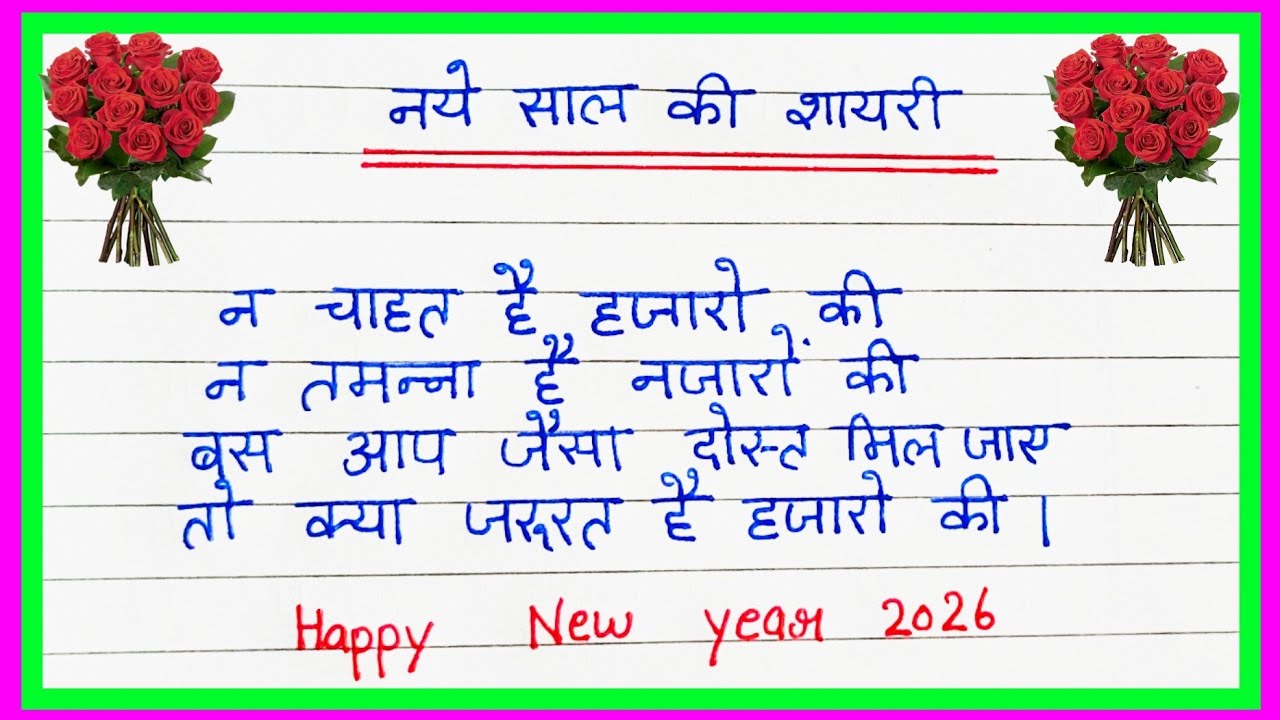 नये साल की शायरी
न चाहत है हजारो की
न तमन्ना है नजारों की
बस आप जैसा दोस्त मिल जाए
तो क्या जरूरत है हजारो की।
Happy New year 2026